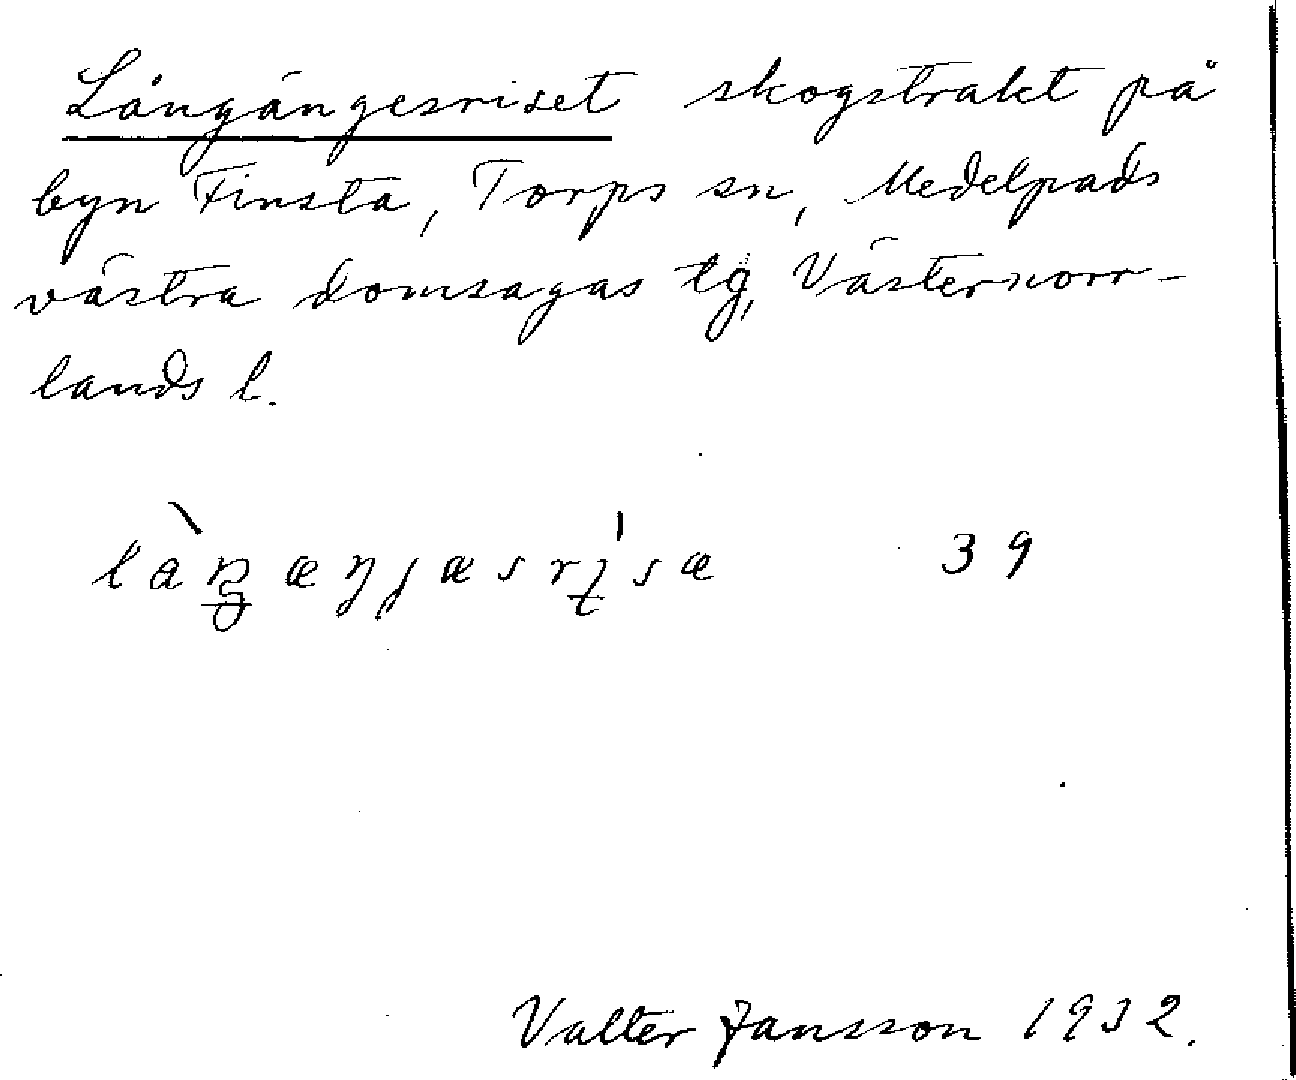 Långängesriset skogstrakt på
byn Finsta, Torps sn, Medelpads
västra domsagas tg, Västernorr-
lands l.
39
Valter Jansson 1932.